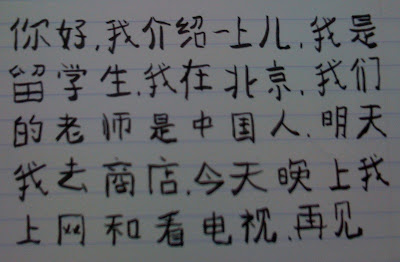 你好,我介绍一上儿,我是
留学生,我在北京,我们
的老师是中国人,明天
我去商店,今天晚上我
上网和看电视,再见